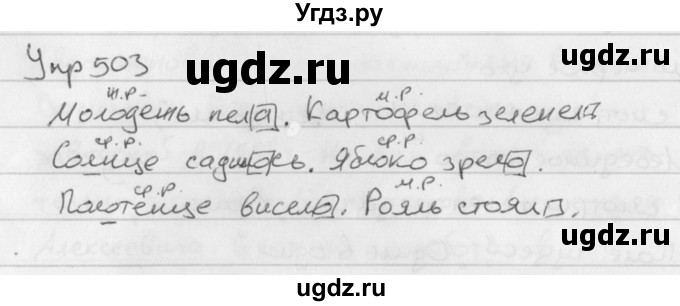 Угдз.ру
Упр 503
ugdz.ru
ugdz.ru
ж.р. м.р.
Молодежь пела. Картофель зеленел
ср.р. ср.р.
Солнце садилось. Яблоко зрело.
ср.р. м.р.
Полотенце висело. Рояль стоял.
ugdz.ru
ugdz.ru
Угдз.ру